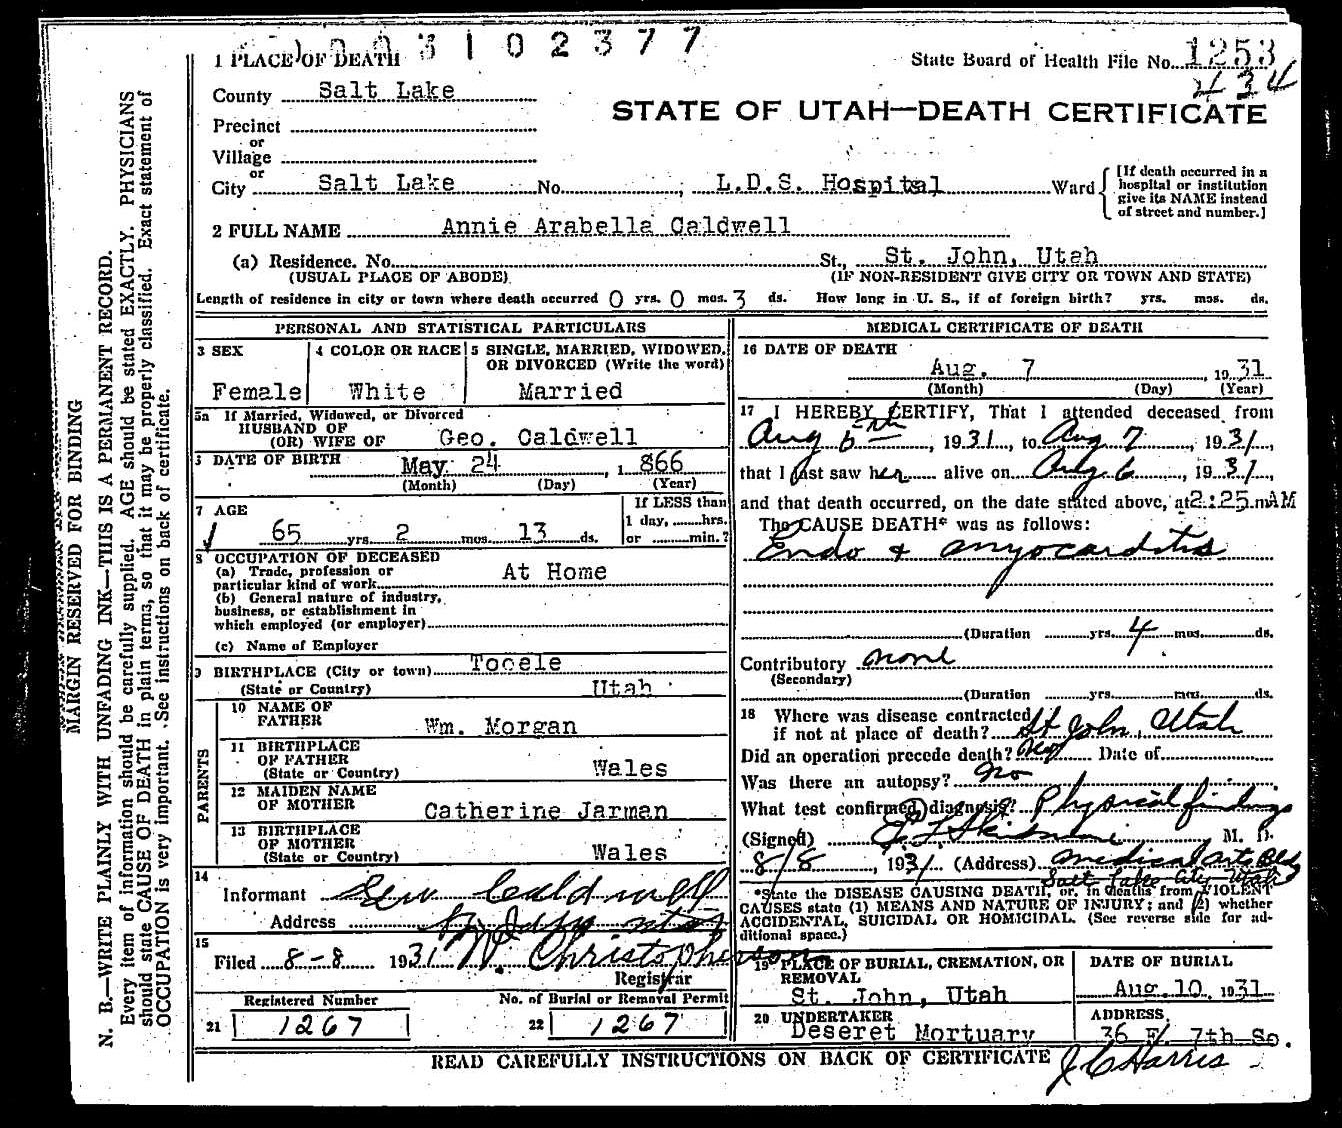 3102377
1 PLACE OF DEATH
State Board of Health File No. 1253
434
County Salt Lake
STATE OF UTAH—DEATH CERTIFICATE
Precinct
or
Village
or
City Salt Lake No. , L.D.S. Hospital Ward
[If death occurred in a hospital or institution give its NAME instead of street and number.]
2 FULL NAME Annie Arabella Caldwell
(a) Residence. No. St., St. John, Utah
(USUAL PLACE OF ABODE) (IF NON-RESIDENT GIVE CITY OR TOWN AND STATE)
Length of residence in city or town where death occurred 0 yrs. 0 mos. 3 ds. How long in U. S., if of foreign birth? yrs. mos. ds.
PERSONAL AND STATISTICAL PARTICULARS
3 SEX
Female
4 COLOR OR RACE
White
5 SINGLE, MARRIED, WIDOWED,
OR DIVORCED (Write the word)
Married
5a If Married, Widowed, or Divorced
HUSBAND OF
(OR) WIFE OF Geo. Caldwell
DATE OF BIRTH May 24, 1866
(Month) (Day) (Year)
7 AGE
65 yrs. 2 mos. 13 ds.
If LESS than
1 day, hrs.
or min.?
8 OCCUPATION OF DECEASED
(a) Trade, profession or
particular kind of work At Home
(b) General nature of industry,
business, or establishment in
which employed (or employer)
(c) Name of Employer
9 BIRTHPLACE (City or town) Tooele
(State or Country) Utah
PARENTS
10 NAME OF
FATHER Wm. Morgan
11 BIRTHPLACE
OF FATHER
(State or Country) Wales
12 MAIDEN NAME
OF MOTHER Catherine Jarman
13 BIRTHPLACE
OF MOTHER
(State or Country) Wales
14
Informant Geo Caldwell
Address
15
Filed 8-8 1931 W. Christopherson
Registrar
Registered Number
21 1267
No. of Burial or Removal Permit
22 1267
MEDICAL CERTIFICATE OF DEATH
16 DATE OF DEATH
Aug. 7, 1931
(Month) (Day) (Year)
17 I HEREBY CERTIFY, That I attended deceased from
Aug 6th, 1931, to Aug 7, 1931,
that I last saw her alive on Aug 6, 1931,
and that death occurred, on the date stated above, at 2:25 m AM
The CAUSE DEATH* was as follows:
Endo & Myocarditis
(Duration yrs. 4 mos. ds.
Contributory none
(Secondary)
(Duration yrs. mos. ds.
18 Where was disease contracted
if not at place of death? St John, Utah
Did an operation precede death? no Date of
Was there an autopsy? no
What test confirmed diagnosis? Physical findings
(Signed) M. D.
8/8, 1931 (Address) Medical Arts Bldg
Salt Lake City Utah
*State the DISEASE CAUSING DEATH, or, in deaths from VIOLENT
CAUSES state (1) MEANS AND NATURE OF INJURY; and (2) whether
ACCIDENTAL, SUICIDAL OR HOMICIDAL. (See reverse side for ad-
ditional space.)
19 PLACE OF BURIAL, CREMATION, OR
REMOVAL
St. John, Utah
DATE OF BURIAL
Aug. 10, 1931
20 UNDERTAKER
Deseret Mortuary
ADDRESS
36 E. 7th So.
READ CAREFULLY INSTRUCTIONS ON BACK OF CERTIFICATE
J C Harris
MARGIN RESERVED FOR BINDING
N. B.—WRITE PLAINLY WITH UNFADING INK—THIS IS A PERMANENT RECORD.
Every item of information should be carefully supplied. AGE should be stated EXACTLY. PHYSICIANS
should state CAUSE OF DEATH in plain terms, so that it may be properly classified. Exact statement of
OCCUPATION is very important. See instructions on back of certificate.